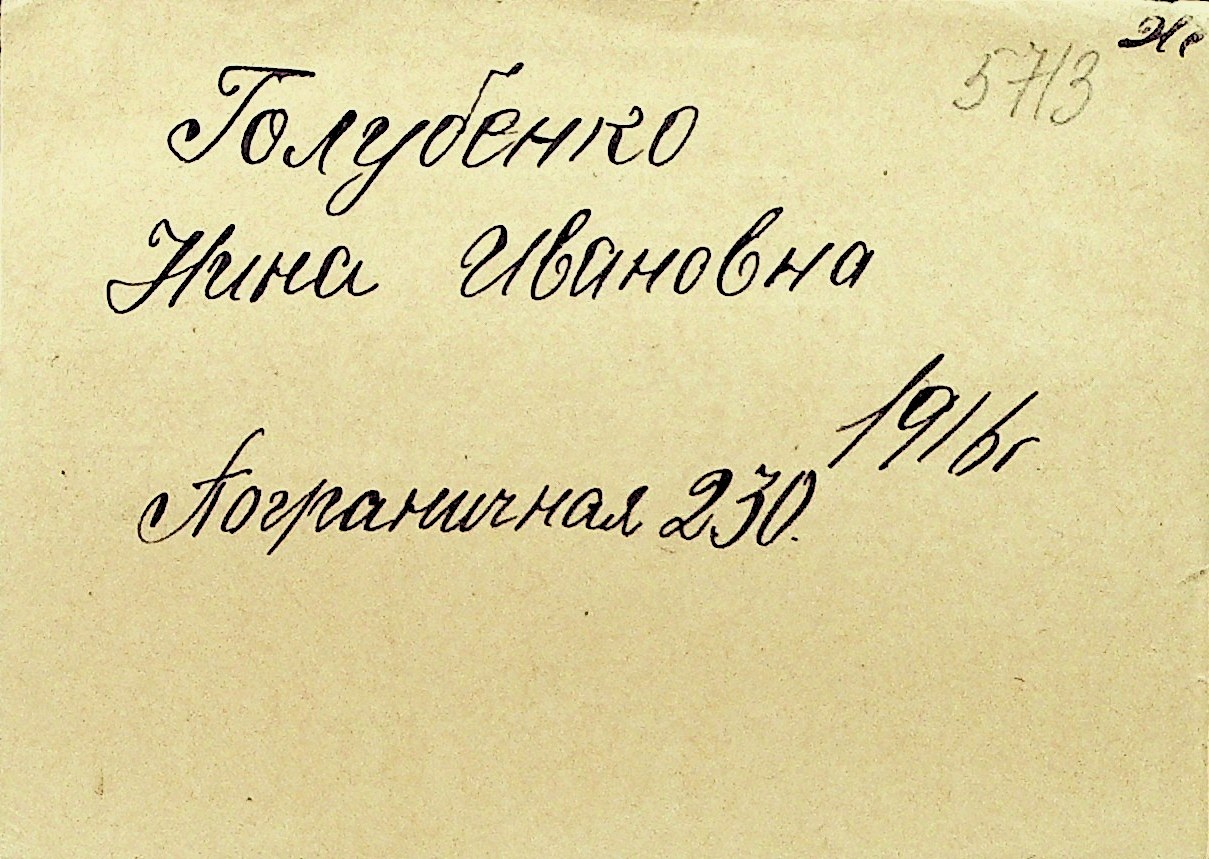 5713
Голубенко
Нина Ивановна
1916г
Пограничная 230.